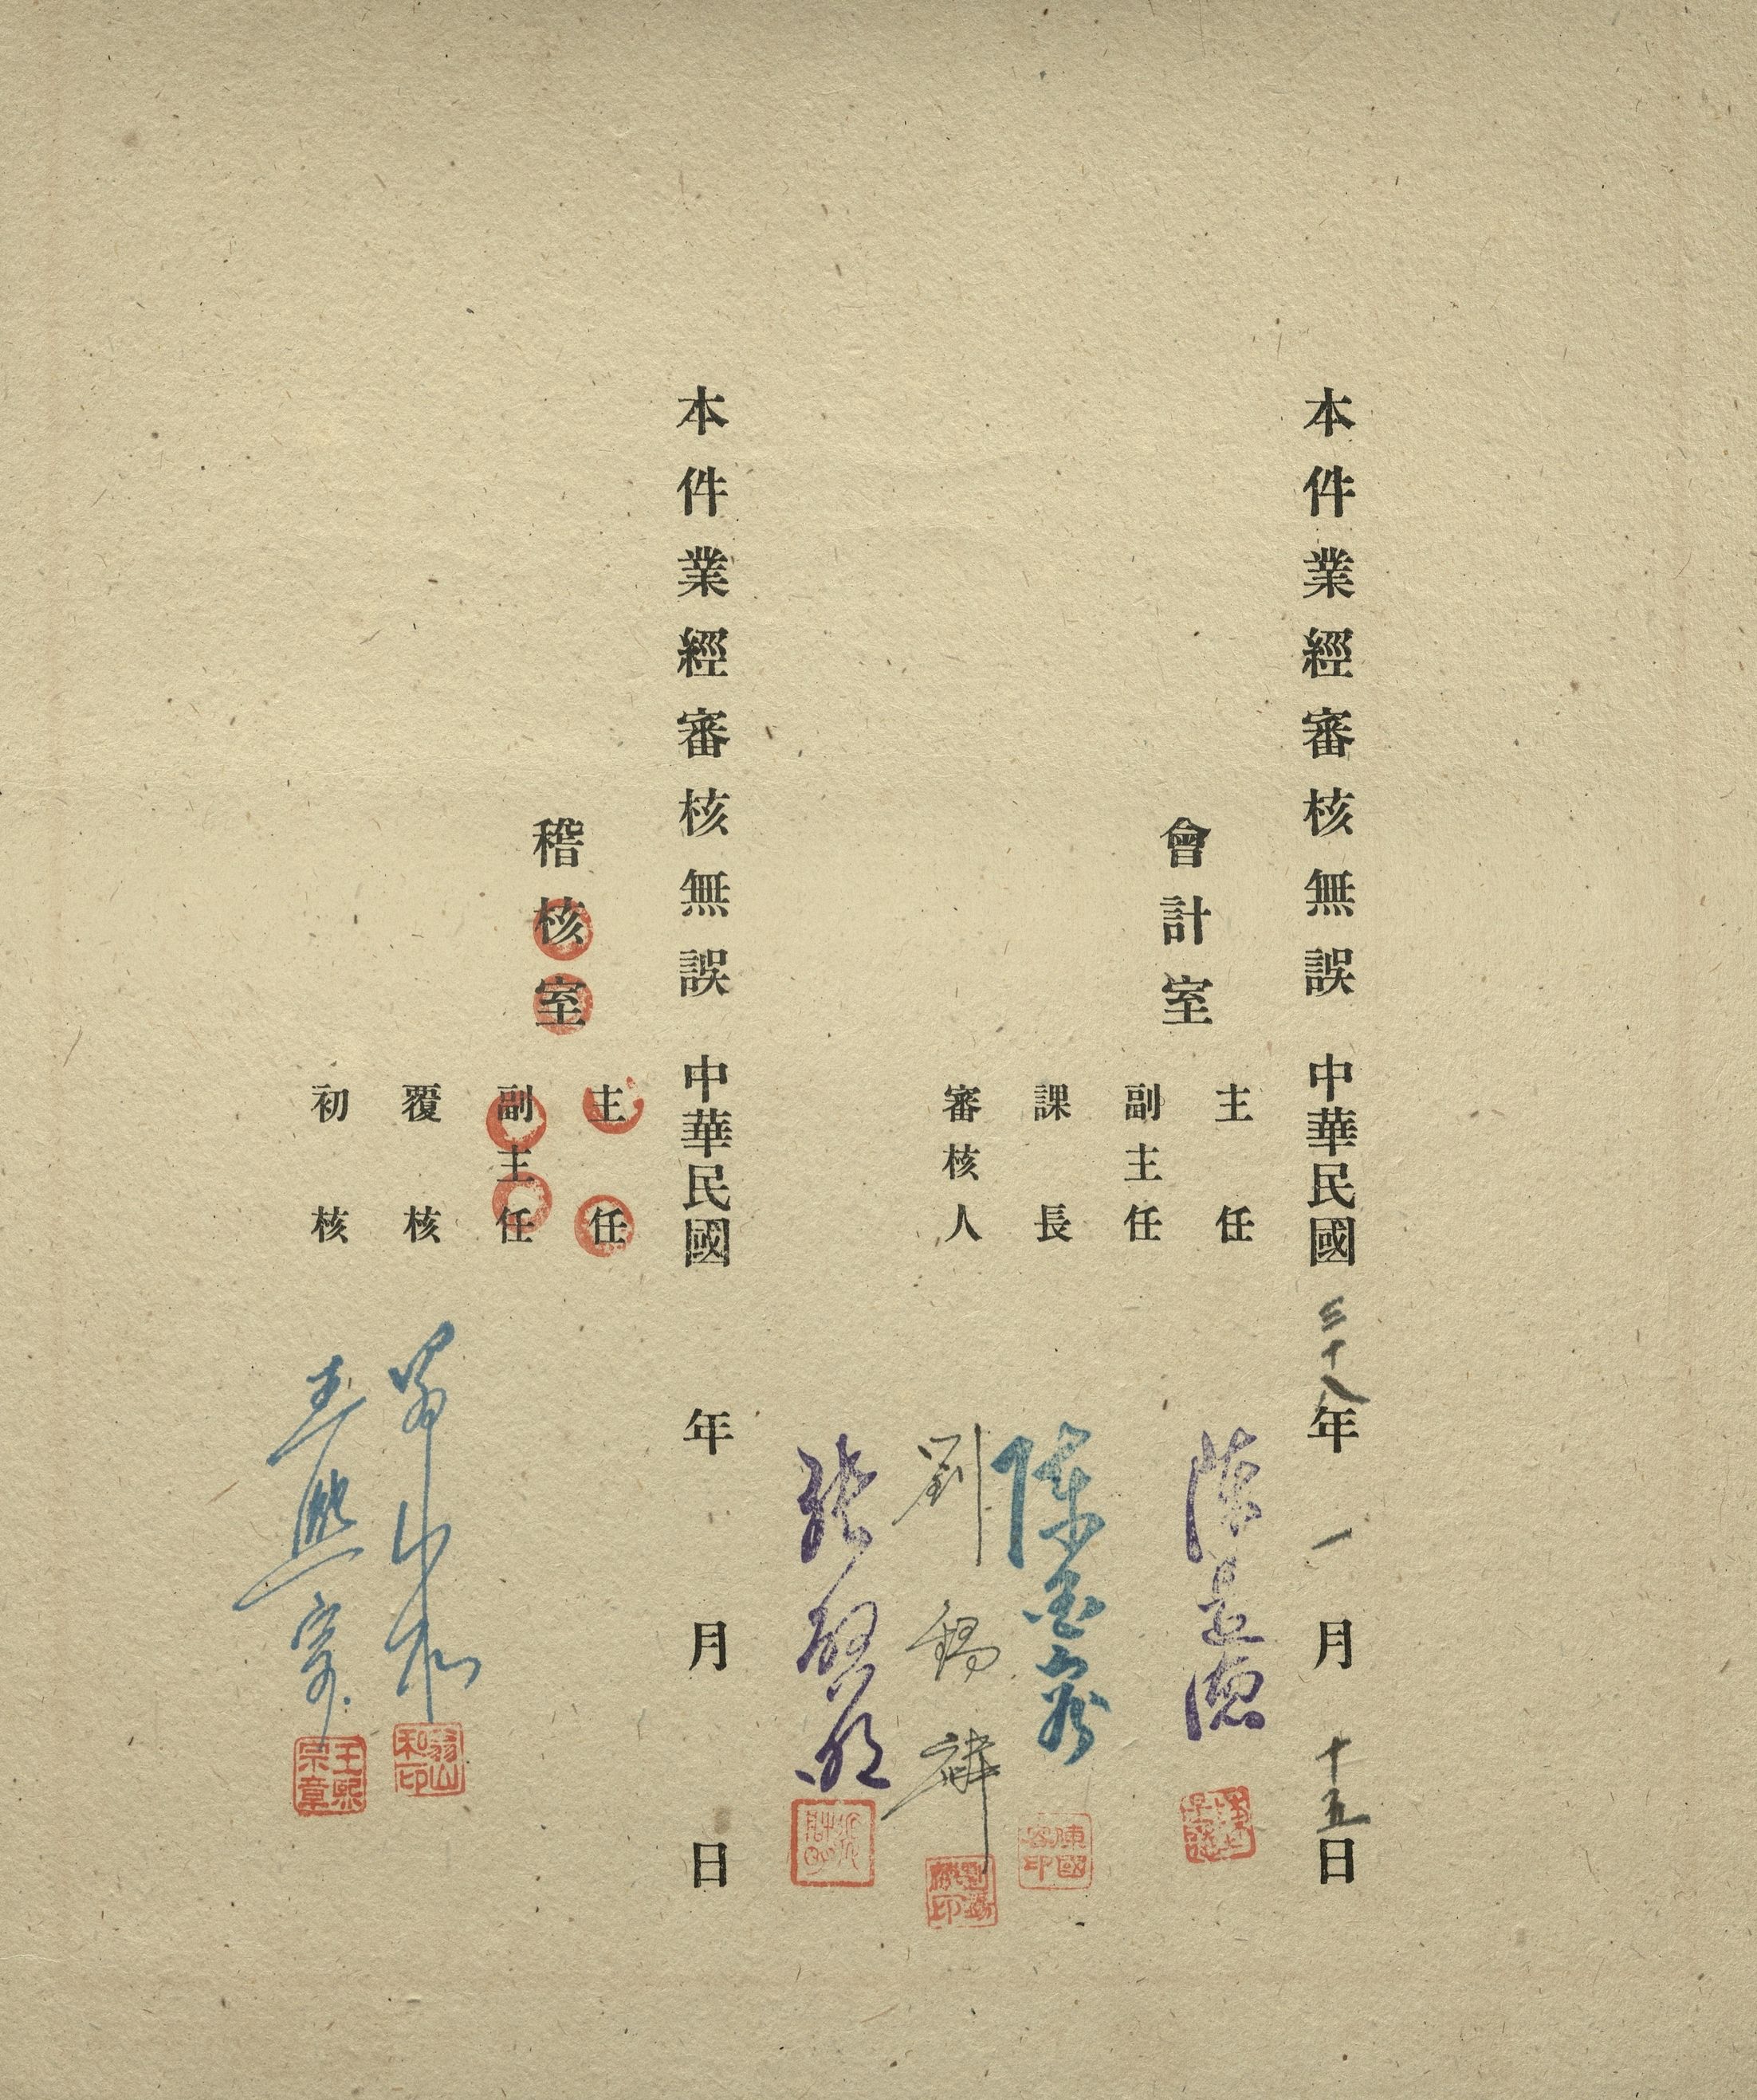 本件業經審核無誤 中華民國三十八年一月十五日
會計室
主任 陳
副主任
課長 陳國
審核人 劉錫
張
本件業經審核無誤 中華民國 年 月 日
稽核室
主任
副主任
覆核 翁山和
翁山和印
初核 王熙宗
王熙宗章